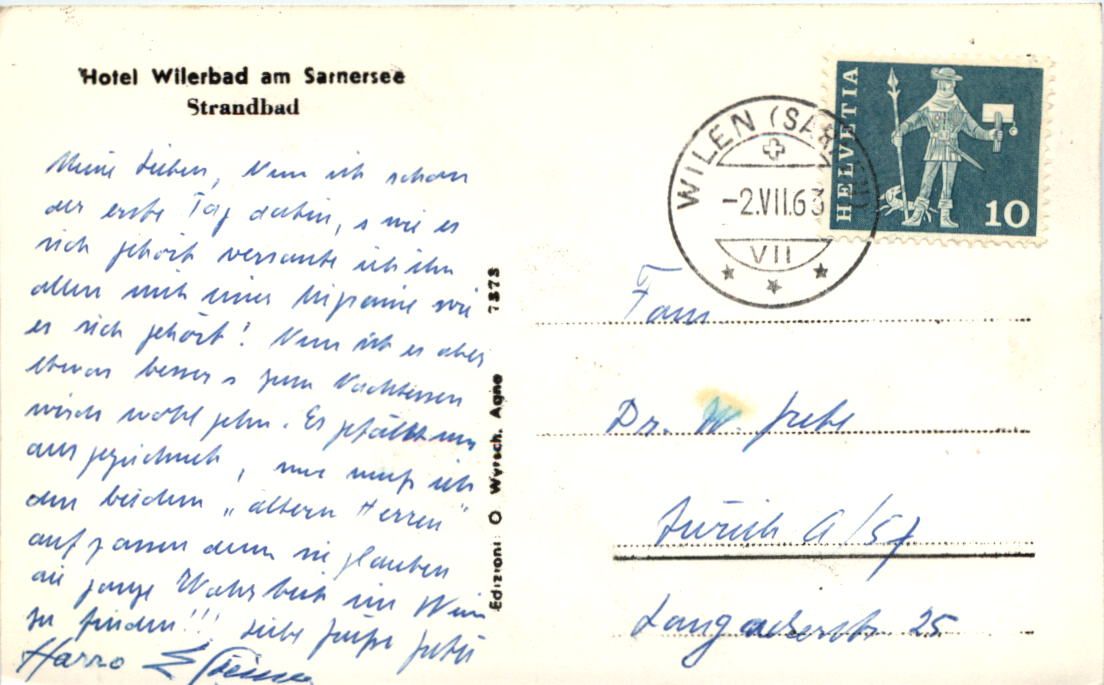 Hotel Wilerbad am Sarnersee
Strandbad
Meine Lieben, Nun ist schon
der erste Tag dahin, s wie es
sich gehört versaute ich ihn
allen mit einer Migraine wie
es sich gehört! Nun ist es aber
etwas besser s zum Nachtessen
wirds wohl gehn. Es gefällt uns
ausgezeichnet, nur muss ich
den beiden „ältern Herren"
aufpassen denn sie glauben
die ganze Wahrheit im Wein
zu finden!!! Liebe Grüsse
Harro
Edizioni O Wyrsch. Agno 7373
WILEN (SARNEN)
-2.VII.63
VII
HELVETIA
10
Fam.
Dr. W.
Zürich
25